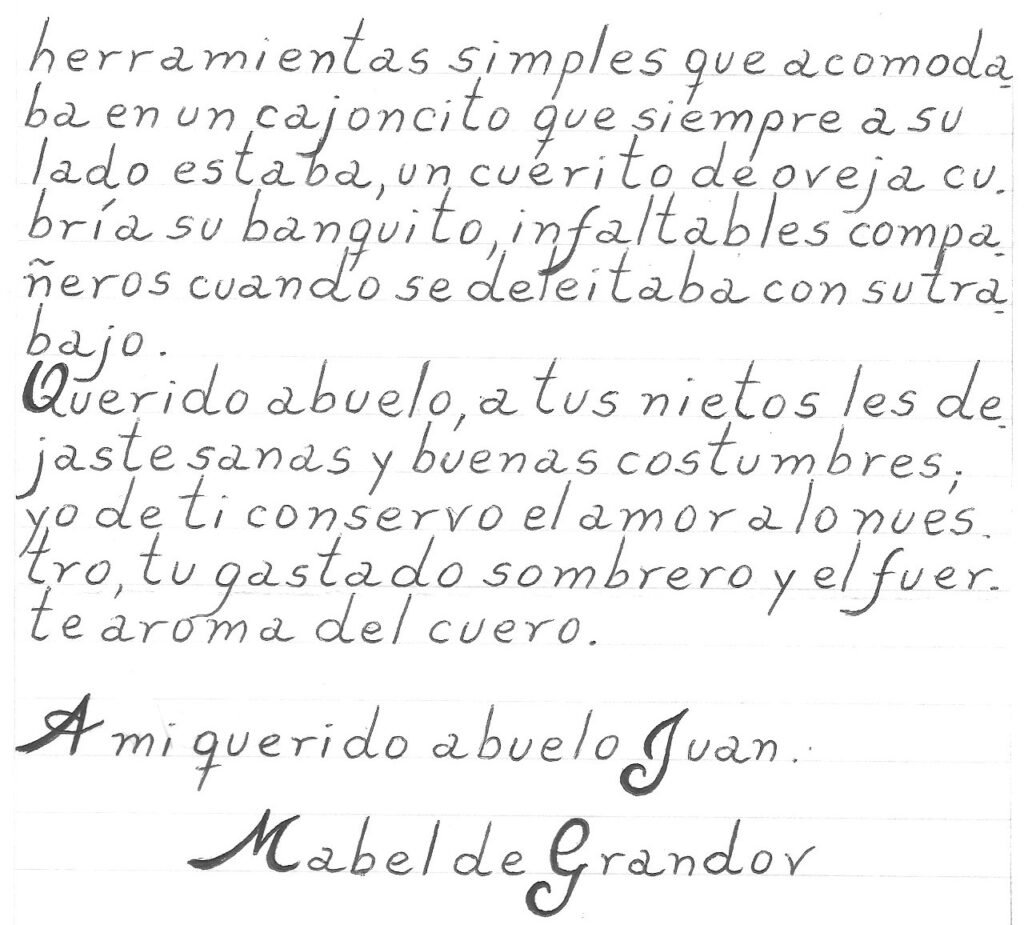 herramientas simples que acomoda-
ba en un cajoncito que siempre a su
lado estaba, un cuerito de oveja cu-
bría su banquito, infaltables compa-
ñeros cuando se deleitaba con su tra-
bajo.
Querido abuelo, a tus nietos les de-
jaste sanas y buenas costumbres;
yo de ti conservo el amor a lo nues-
tro, tu gastado sombrero y el fuer-
te aroma del cuero.
A mi querido abuelo Juan.
Mabel de Grandov